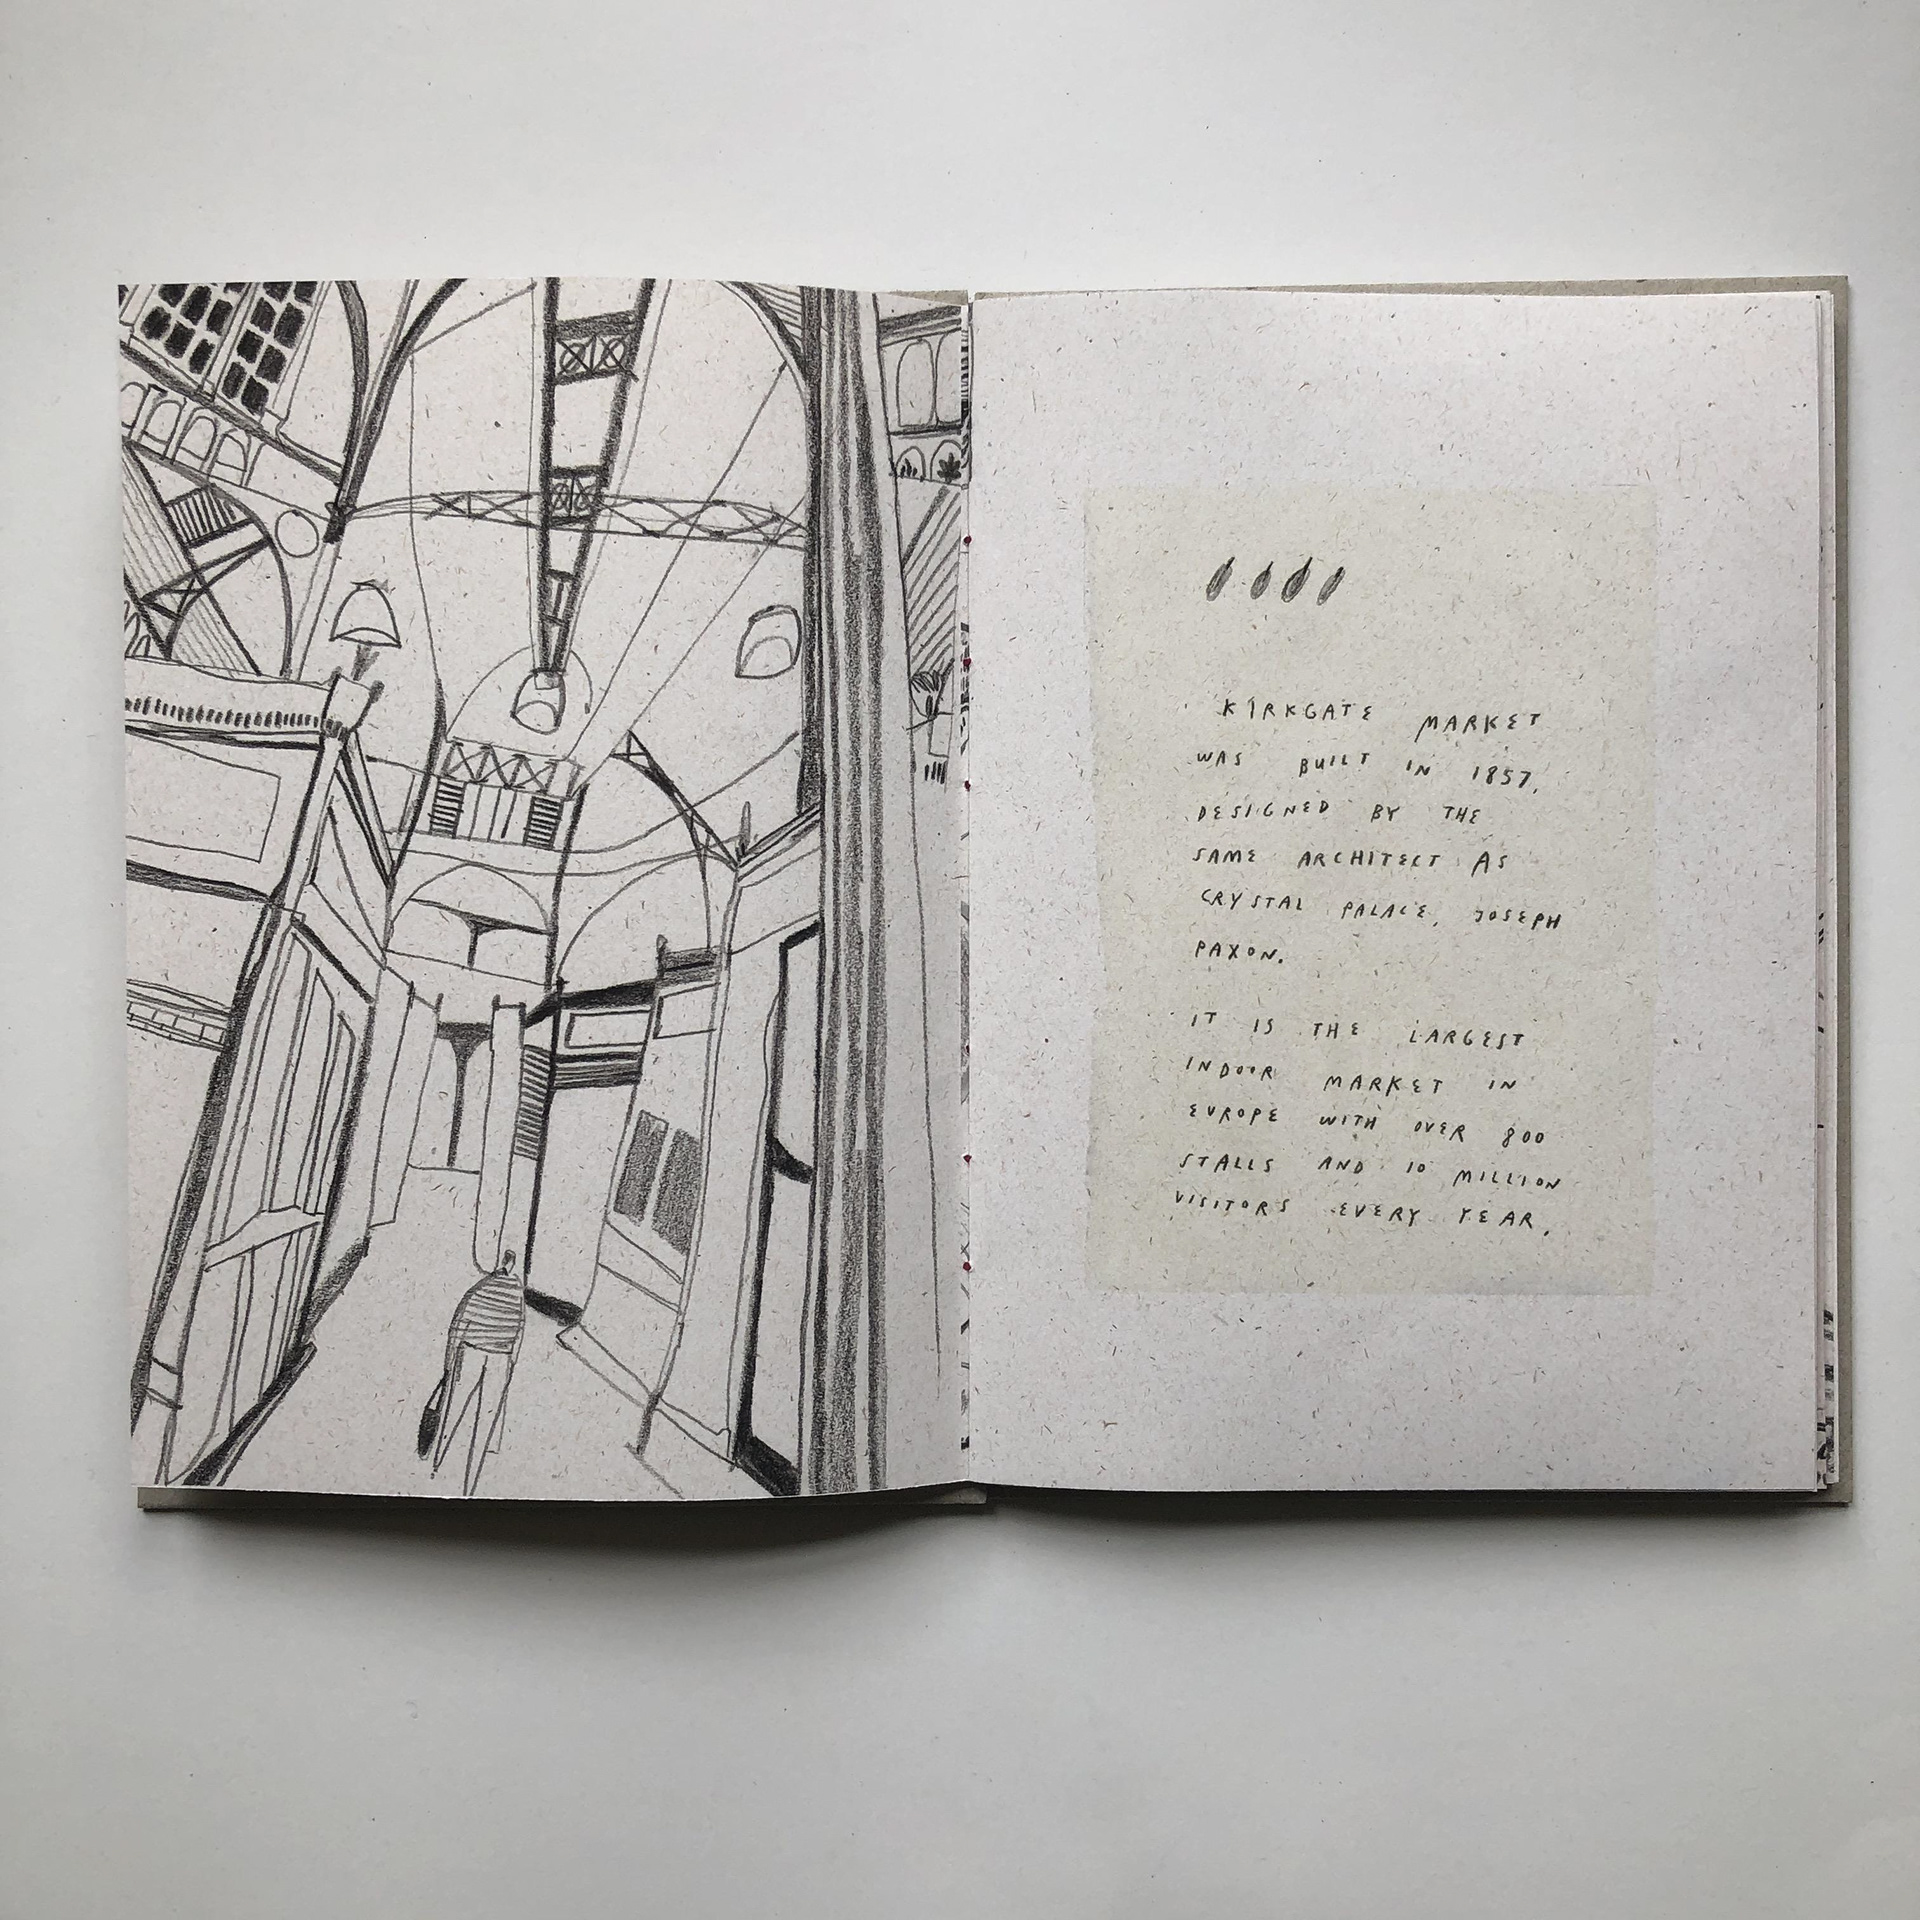 KIRKGATE MARKET
WAS BUILT IN 1857,
DESIGNED BY THE
SAME ARCHITECT AS
CRYSTAL PALACE, JOSEPH
PAXON.
IT IS THE LARGEST
INDOOR MARKET IN
EUROPE WITH OVER 800
STALLS AND 10 MILLION
VISITORS EVERY YEAR.